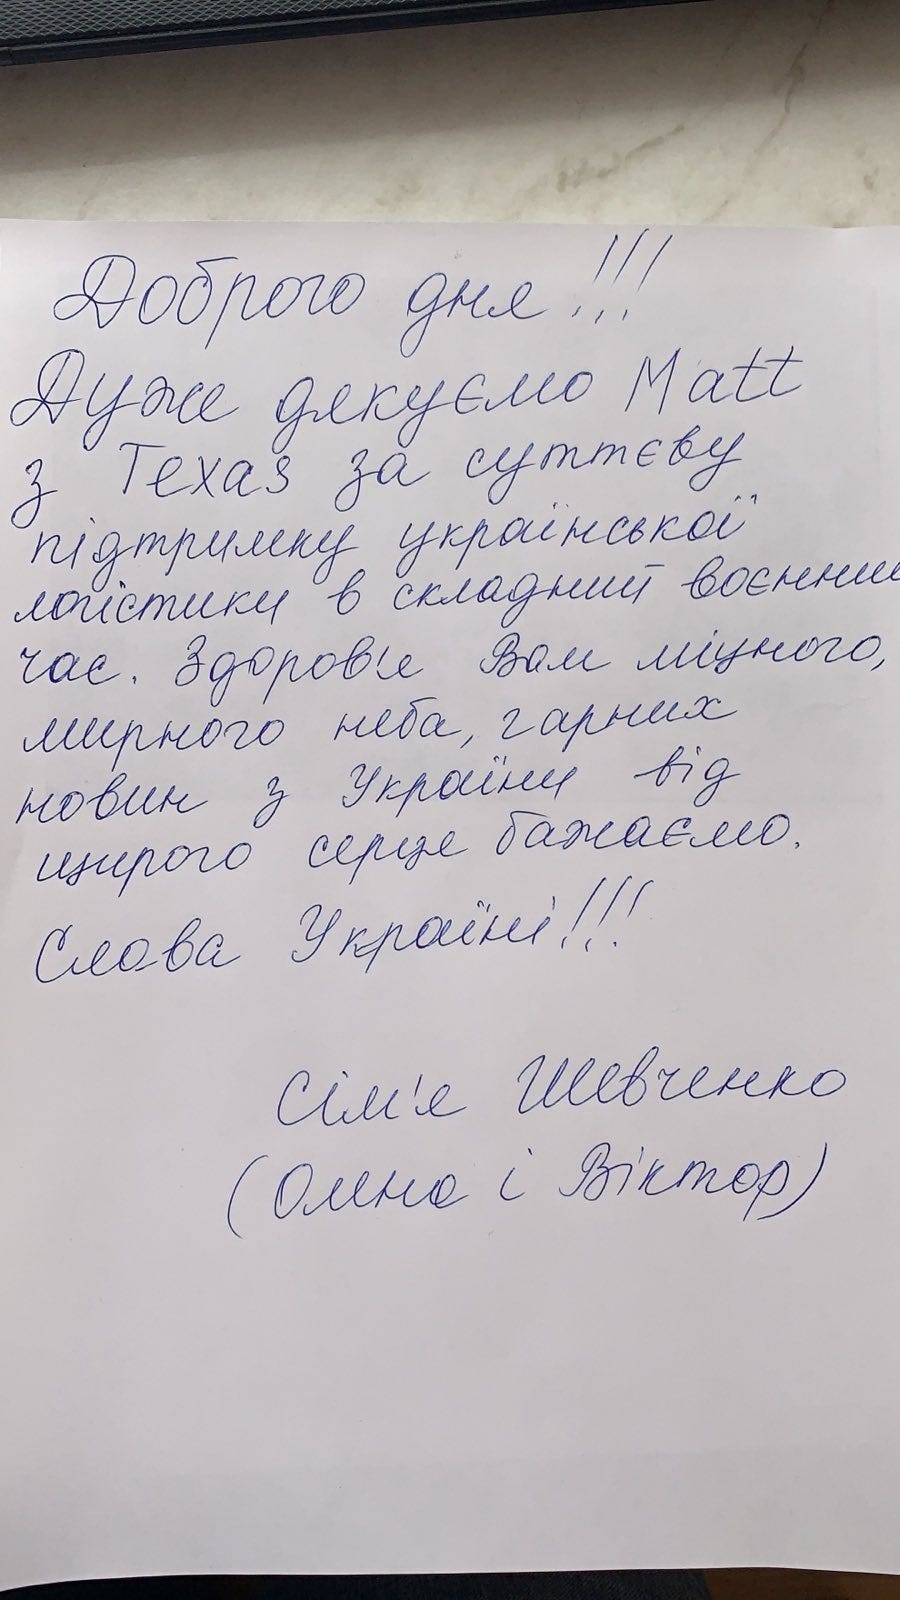 Доброго дня!!!
Дуже дякуємо Matt
з Техаs за суттєву
підтримку української
логістики в складний воєнний
час. Здоров'я Вам міцного,
мирного неба, гарних
новин з України від
щирого серце бажаємо.
Слава Україні!!!
Сім'я Шевченко
( і Віктор)